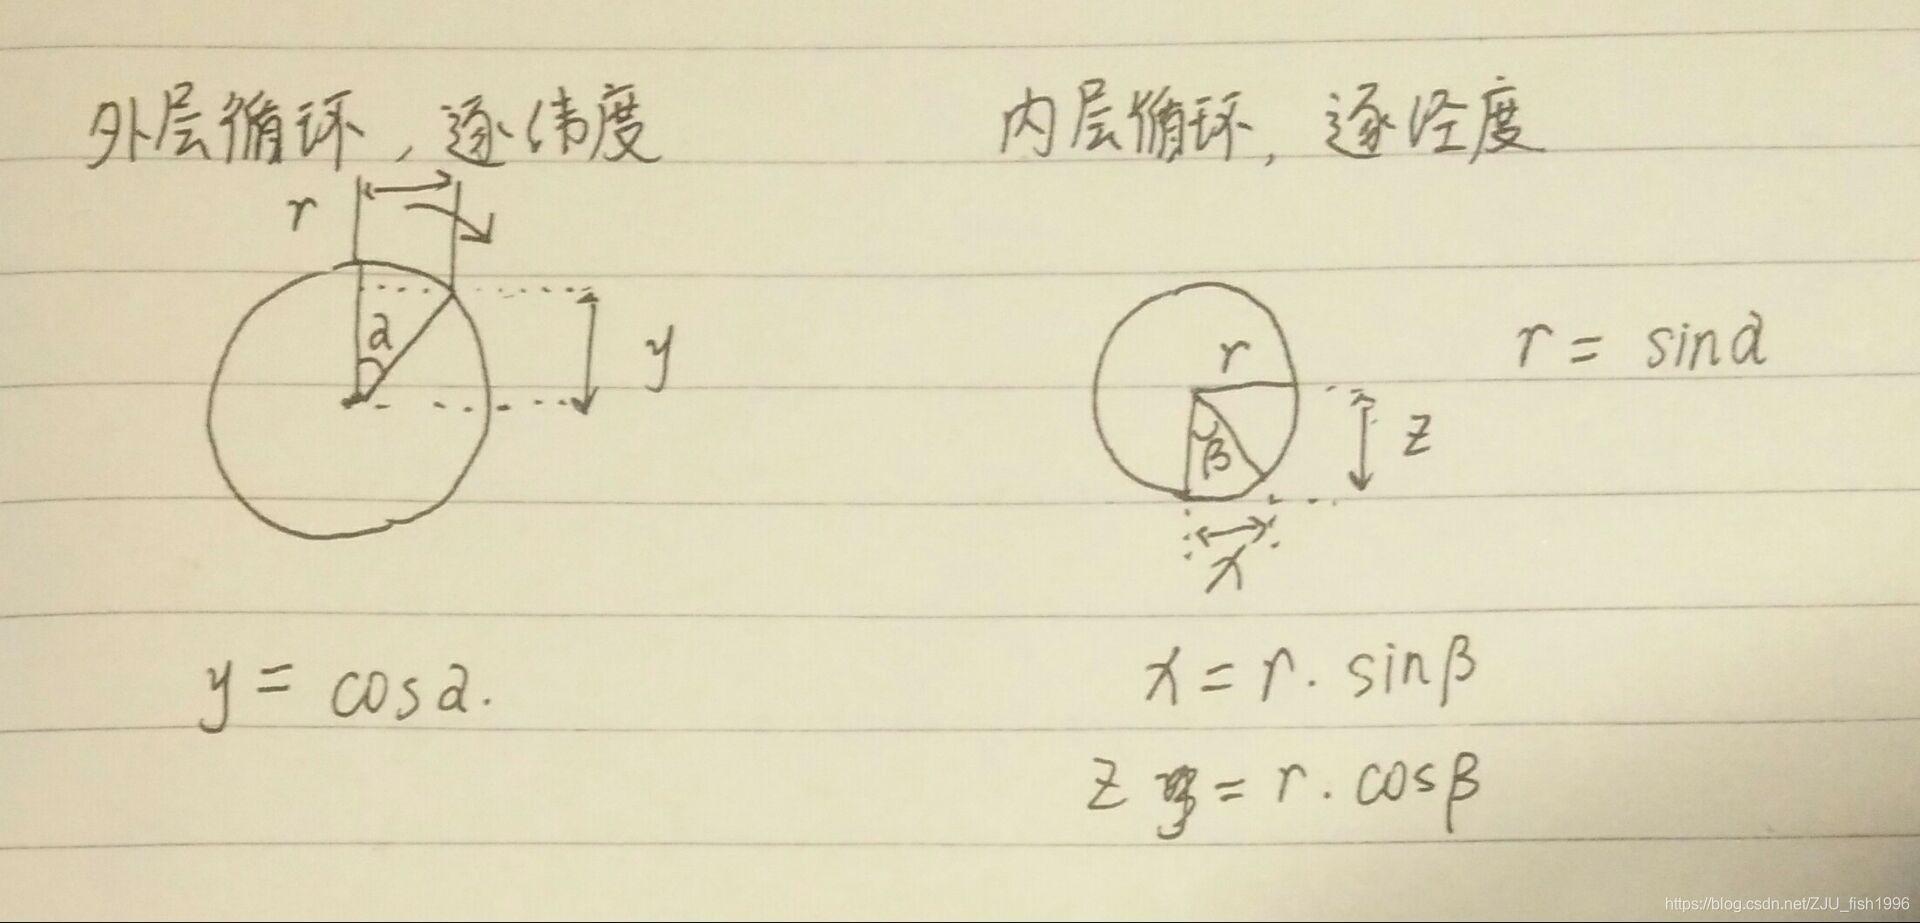 外层循环，逐纬度
r
α
y
y = cosα.
内层循环，逐经度
r
β
z
x
r = sinα
x = r · sinβ
z = r · cosβ
https://blog.csdn.net/ZJU_fish1996